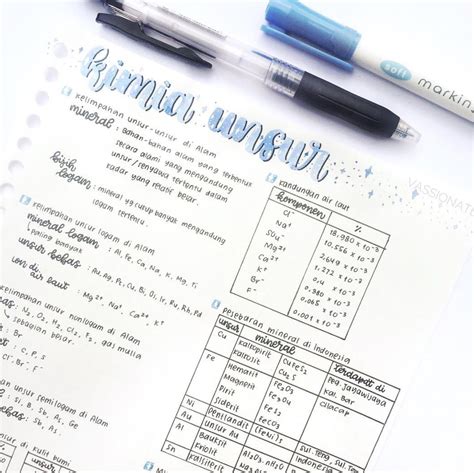 kimia unsur
soft
markin
VASSIONAT
1 Kelimpahan unsur-unsur di Alam
mineral : Bahan-bahan alam yang terbentuk
secara alami yang mengandung
unsur/senyawa tertentu dalam
kadar yang relatif besar.
bijih
logam : mineral yg cukup banyak mengandung
logam tertentu.
2 Kelimpahan unsur logam di Alam
mineral logam : Al, Fe, Ca, Na, K, Mg,
↳ paling banyak
unsur bebas : Au, Ag, Pt, Cu, Bi, Os, Ir, Ru, Rb, Pd
ion di
air laut : Mg²⁺, Na⁺, Ca²⁺, K⁺
Kelimpahan unsur nonlogam di Alam
: N₂, O₂, H₂, Cl₂, F₂, gas mulia
↳ sebagian besar.
: C, P, S
Cl⁻, Br⁻, F⁻
Kelimpahan unsur semilogam di Alam
: Si, B, Sb, As, Ge
: As, Sb
unsur di kulit bumi
Kandungan air laut
komponen %
Cl⁻ 18.980 x 10⁻³
Na⁺ 10.556 x 10⁻³
SO₄²⁻ 2.649 x 10⁻³
Mg²⁺ 1.272 x 10⁻³
Ca²⁺ 0.4 x 10⁻³
K⁺ 0.380 x 10⁻³
Br⁻ 0.065 x 10⁻³
F⁻ 0.001 x 10⁻³
Persebaran mineral di Indonesia
unsur mineral terdapat di
Cu Kalkopirit CuFeS₂ Peg. Jayawijaya
Kalkosit Cu₂S
Fe Hematit Fe₂O₃ Kal. Bar
Magnetit Fe₃O₄ Cilacap
Pirit FeS₂
Siderit
Ni Penlandit (FeNi)S
Au unsur Au
Al Bauksit
Kriolit
Sn Kasiterit